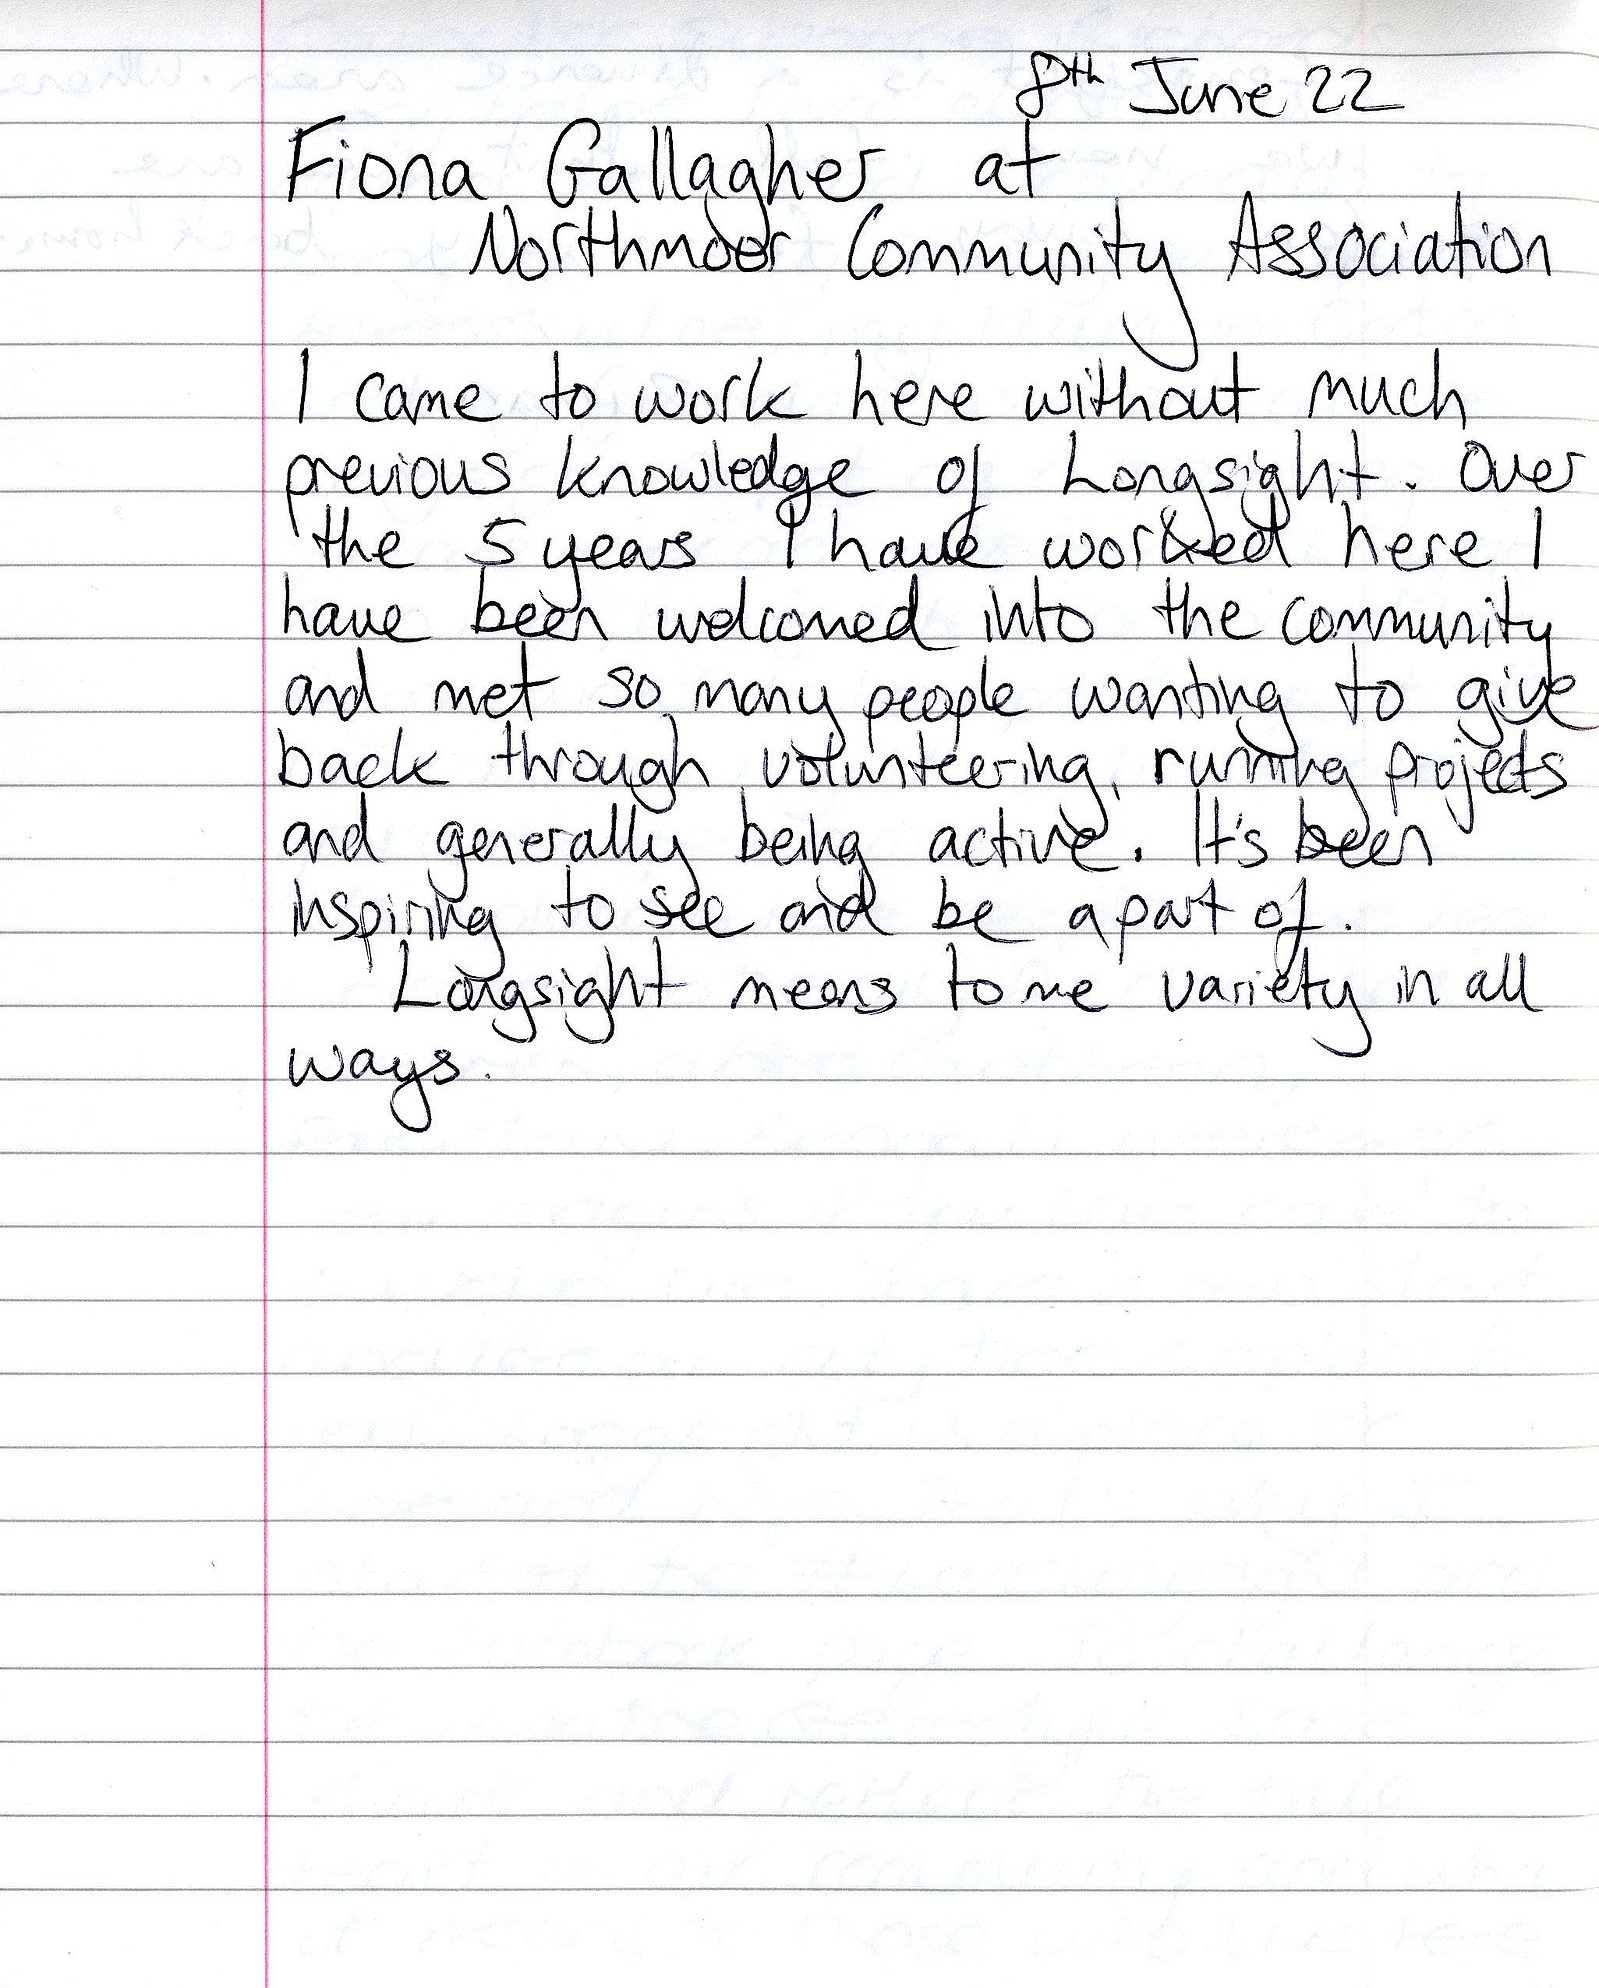 8th June 22
Fiona Gallagher at
Northmoor Community Association
I came to work here without much
previous knowledge of Longsight. Over
the 5 years I have worked here I
have been welcomed into the community
and met so many people wanting to give
back through volunteering, running projects
and generally being active. It's been
inspiring to see and be a part of.
Longsight means to me variety in all
ways.